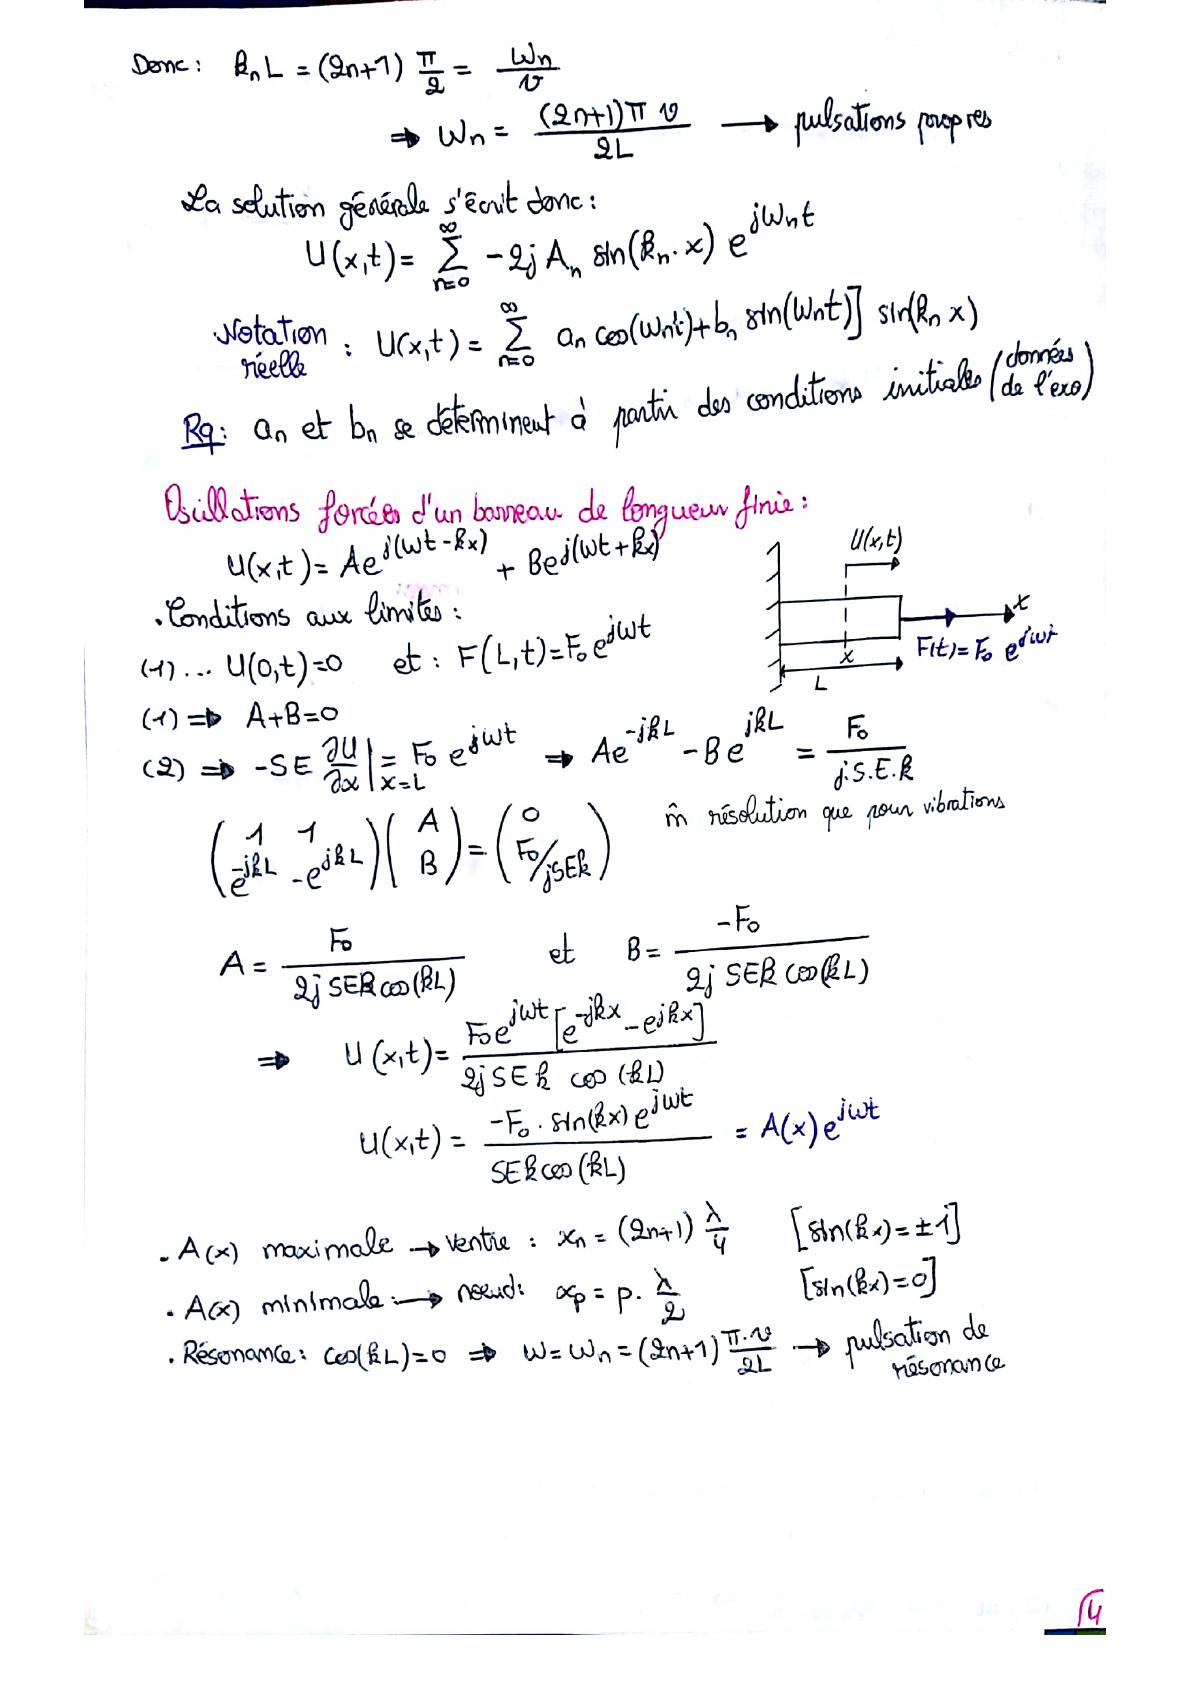 Donc : k_n L = (2n+1) π/2 = W_n/v
⇒ W_n = (2n+1)π v / 2L → pulsations propres
La solution générale s'écrit donc :
U(x,t) = ∑_{n=0}^{∞} -2j A_n sin(k_n . x) e^{jW_n t}
Notation réelle : U(x,t) = ∑_{n=0}^{∞} a_n cos(W_n t) + b_n sin(W_n t)] sin(k_n x)
Rq : a_n et b_n se déterminent à partir des conditions initiales (données de l'exo)
Oscillations forcées d'un barreau de longueur finie :
U(x,t) = Ae^{j(wt-kx)} + Be^{j(wt+kx)}
U(x,t)
. Conditions aux limites :
x
(1) ... U(0,t)=0 et : F(L,t)=F₀ e^{jwt}
F(t)=F₀ e^{jwt}
x
L
(1) ⇒ A+B=0
(2) ⇒ -SE ∂U/∂x |_{x=L} = F₀ e^{jwt} ⇒ Ae^{-jkL} - Be^{jkL} = F₀ / j.S.E.k
(1 1 ; e^{-jkL} -e^{jkL}) (A ; B) = (0 ; F₀/jSEk) m̂ résolution que pour vibrations
A = F₀ / 2j SEk cos(kL) et B = -F₀ / 2j SEk cos(kL)
⇒ U(x,t) = F₀ e^{jwt} [e^{-jkx} - e^{jkx}] / 2j SEk cos(kL)
U(x,t) = -F₀ . sin(kx) e^{jwt} / SEk cos(kL) = A(x) e^{jwt}
. A(x) maximale → ventre : x_n = (2n+1) λ/4 [sin(kx)=±1]
. A(x) minimale : → noeud : x_p = p . λ/2 [sin(kx)=0]
. Résonance : cos(kL)=0 ⇒ w = w_n = (2n+1) π.v / 2L → pulsation de résonance
14